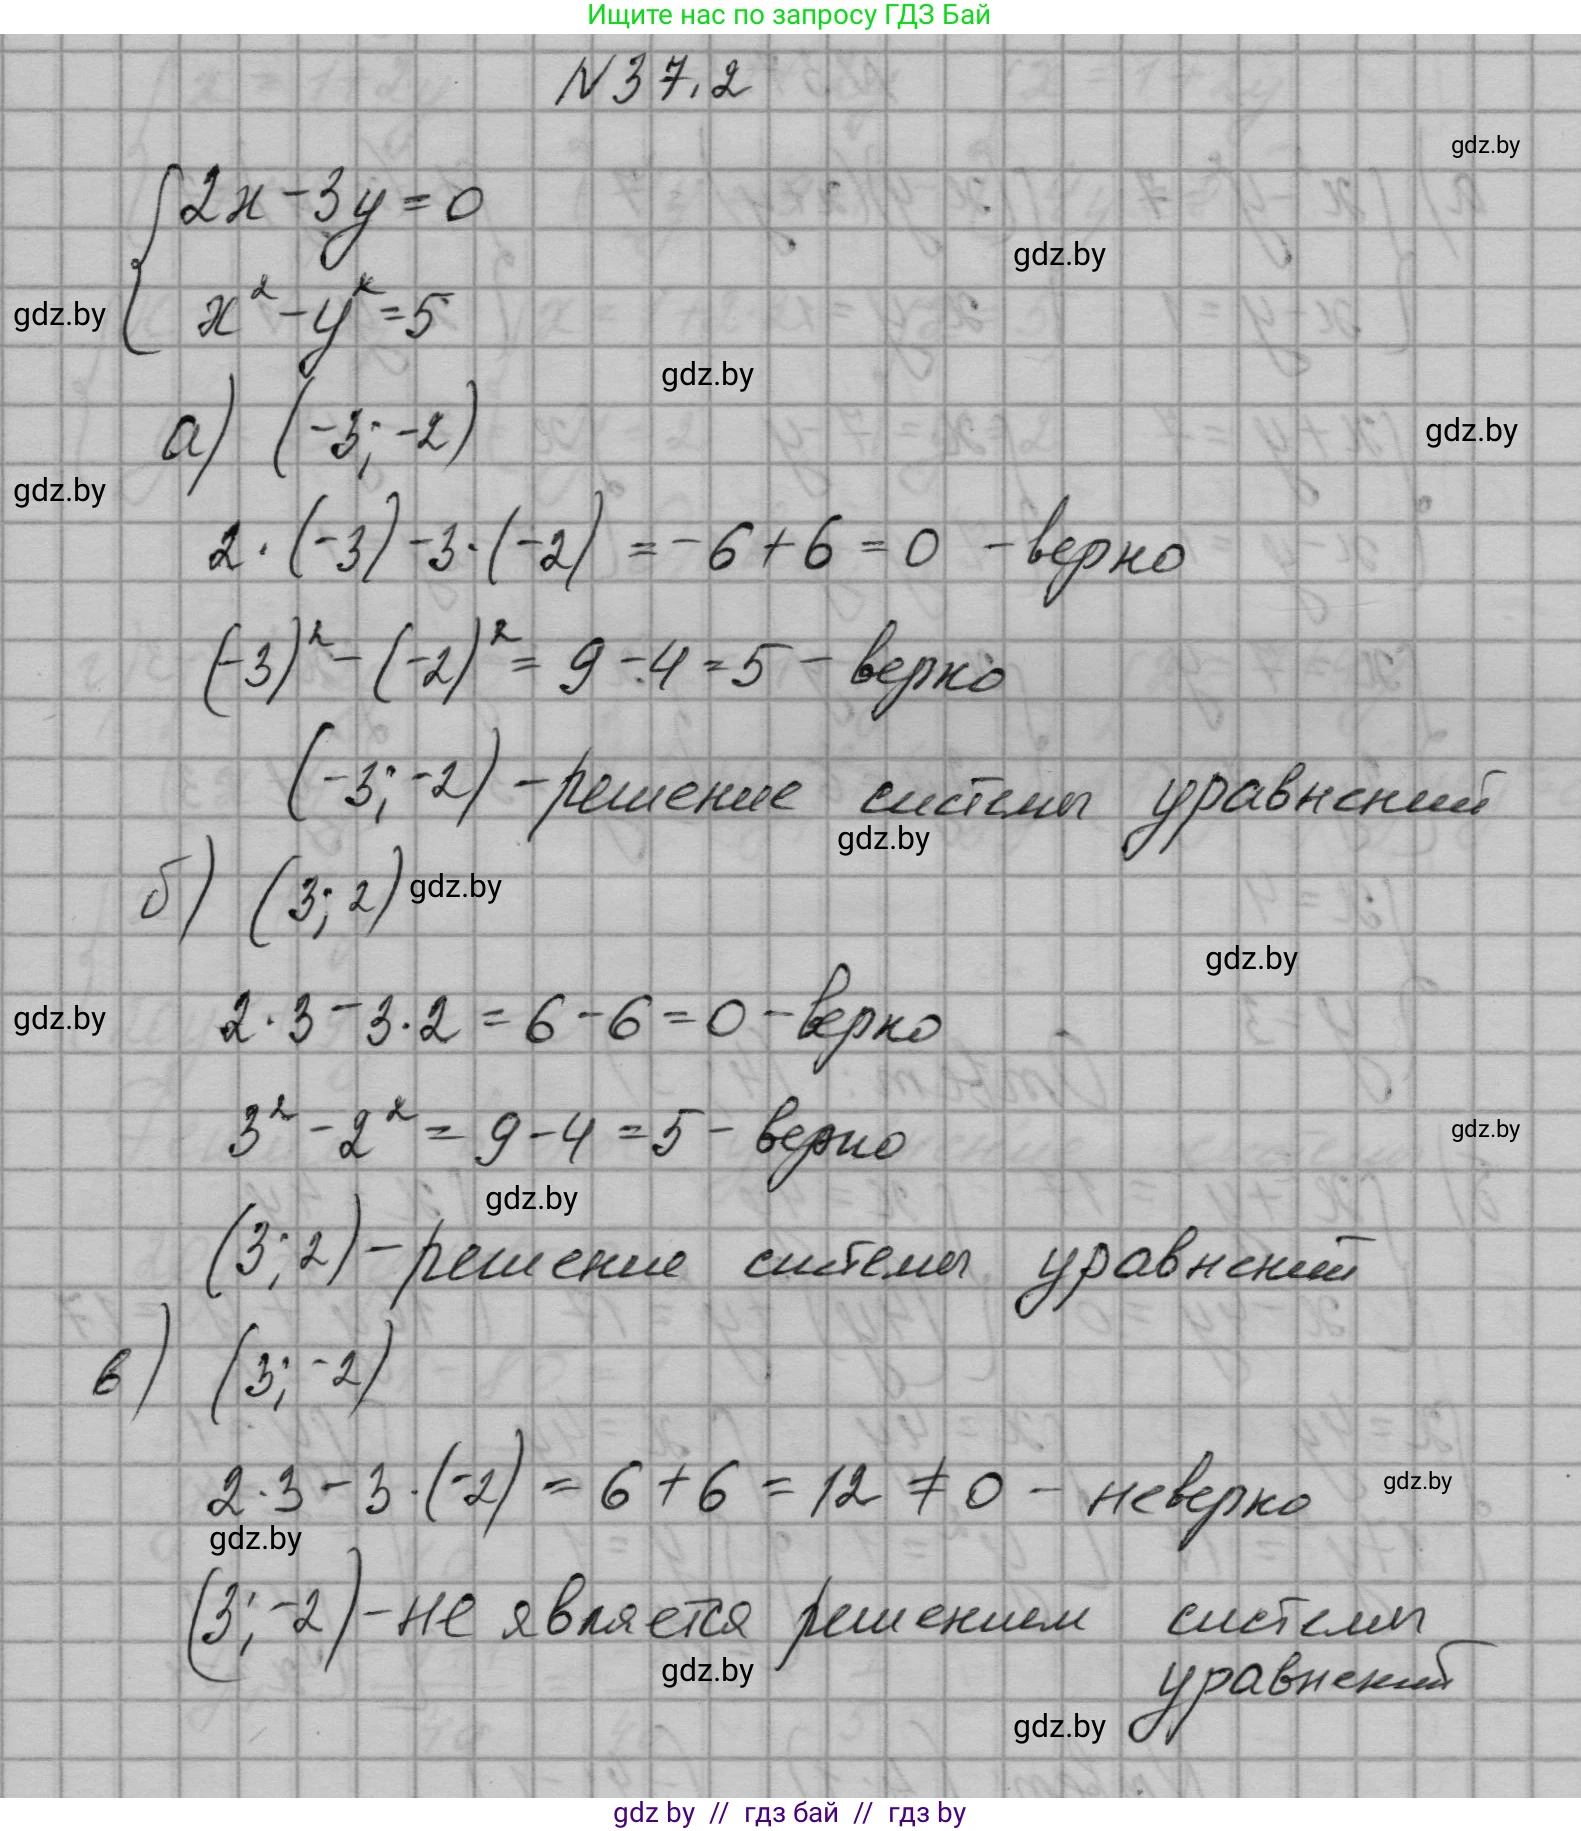 Ищите нас по запросу ГДЗ Бай
N 37.2
gdz.by
2x - 3y = 0
gdz.by
x² - y² = 5
gdz.by
gdz.by
а) (-3; -2)
gdz.by
gdz.by
2 · (-3) - 3 · (-2) = -6 + 6 = 0 - верно
(-3)² - (-2)² = 9 - 4 = 5 - верно
(-3; -2) - решение системы уравнений
gdz.by
б) (3; 2)
gdz.by
gdz.by
2 · 3 - 3 · 2 = 6 - 6 = 0 - верно
gdz.by
3² - 2² = 9 - 4 = 5 - верно
gdz.by
gdz.by
(3; 2) - решение системы уравнений
в) (3; -2)
2 · 3 - 3 · (-2) = 6 + 6 = 12 ≠ 0 - неверно
gdz.by
gdz.by
(3; -2) - не является решением системы
уравнений
gdz.by
gdz.by
gdz by // гдз бай // гдз by